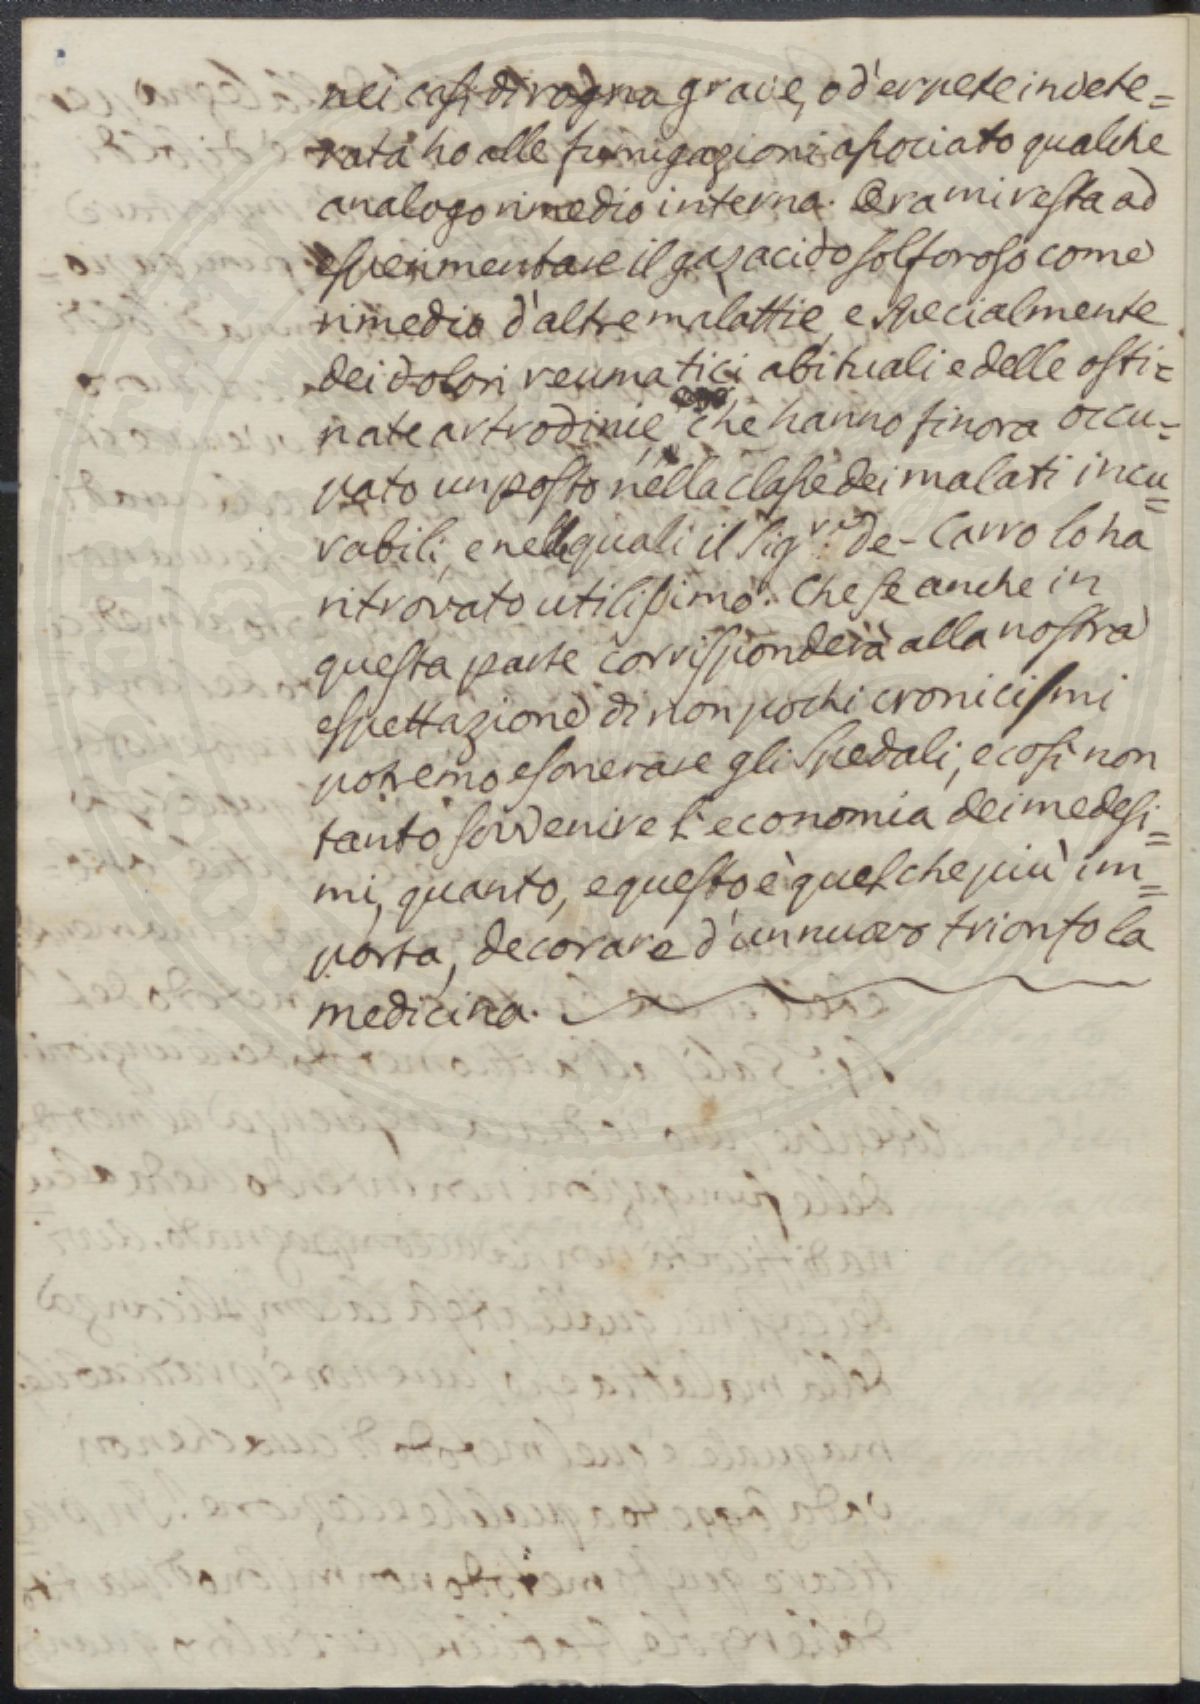 nei casi di rogna grave, o d'erpete invete=
rata ho alle fumigazioni associato qualche
analogo rimedio interna. Ora mi resta ad
esperimentare il gaz acido solforoso come
rimedio d'altre malattie, e specialmente
dei dolori reumatici abituali e delle osti=
nate artrodinie, che hanno finora occu=
pato un posto nella classe dei malati incu=
rabili, e nelle quali il Sig.re de-Carro lo ha
ritrovato utilissimo. Che se anche in
questa parte corrisponderà alla nostra
espettazione di non pochi cronicismi
potremo esonerare gli Spedali, e così non
tanto sovvenire l'economia dei medesi=
mi, quanto, e questo è quel che più im=
porta, decorare d'un nuovo trionfo la
medicina.